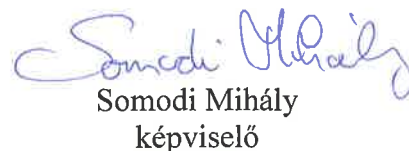 Somodi Mihály
Somodi Mihály
képviselő